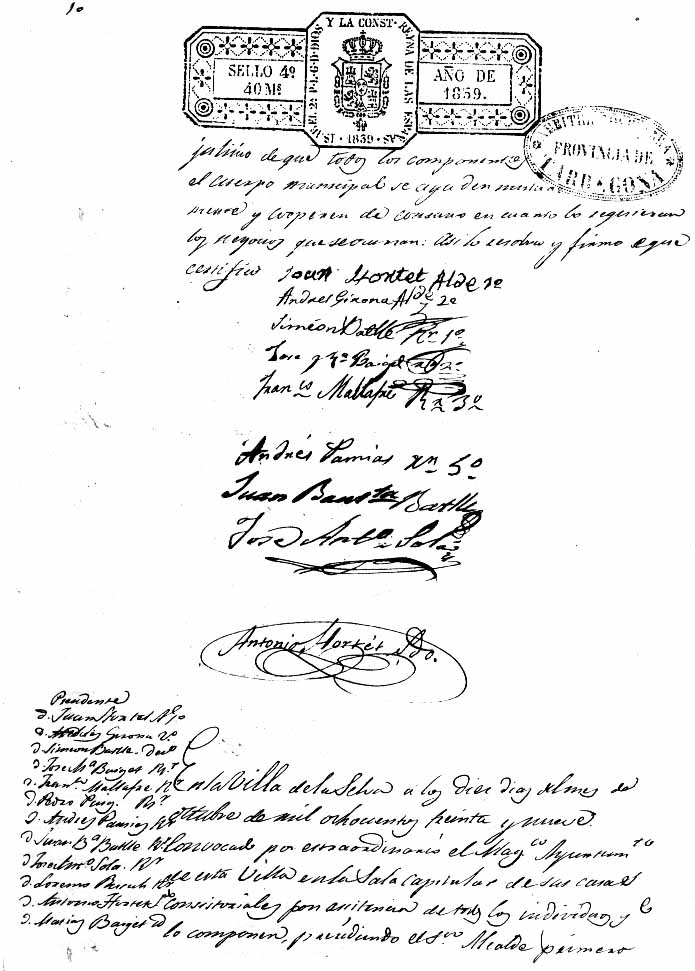 10
ISABEL 2ª P.L.G.D.DIOS Y LA CONST. REYNA DE LAS ESPAÑAS
SELLO 4º
40 Ms
AÑO DE
1839.
1839
ARBITRIOS
PROVINCIA DE
TARRAGONA
de que todos los componentes
el cuerpo municipal se ayuden
mente y cooperen de consuno en cuanto lo requieran
los negocios que se ocurran: Asi lo resolvio y firmo de que
certifico
Juan Hortet Alde 1º
Andres Girona Alde 2º
Simeón Batlle Rr 1º
Jose Mª Baiget Rr 2º
Franco Mallafré Rr 3º
Andrés Pamias Rr 5º
Juan Bautta Batlle
José Anto Solá
Antonio Hortét Sdo.
Presidente
D. Juan Hortet Al 1º
D. Andres Girona 2º
D. Simeon Batlle
D. Jose Mª Baiget Rr
D. Franco Mallafre Rr
D. Pedro Puig Rr
D. Andres Pamias Rr
D. Juan Bª Batlle Rr
D. Jose Anto Sola Rr
D. Lorenzo
D. Antonio Hortet
D. Baiget
En la Villa de la Selva a los diez dias del mes de
octubre de mil ochocientos treinta y nueve.
Convocado por extraordinario el Mago Ayuntamto
de esta Villa en la Sala capitular de sus casas
Consistoriales por asistencia de todos los individuos q e
lo componen, presidiendo el Sor Alcalde primero